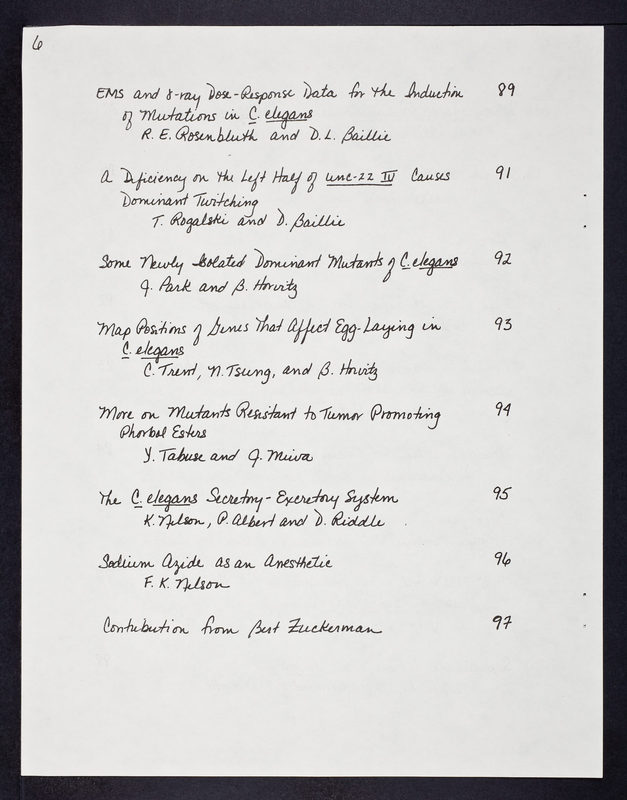 6
EMS and γ-ray Dose-Response Data for the Induction 89
of Mutations in C. elegans
R. E. Rosenbluth and D. L. Baillie
A Deficiency on the Left Half of unc-22 IV Causes 91
Dominant Twitching
T. Rogalski and D. Baillie
Some Newly Isolated Dominant Mutants of C. elegans 92
J. Park and B. Horvitz
Map Positions of Genes That Affect Egg-Laying in 93
C. elegans
C. Trent, N. Tsung, and B. Horvitz
More on Mutants Resistant to Tumor Promoting 94
Phorbol Esters
Y. Tabuse and J. Miwa
The C. elegans Secretory-Excretory System 95
K. Nelson, P. Albert and D. Riddle
Sodium Azide as an Anesthetic 96
F. K. Nelson
Contribution from Bert Zuckerman 97